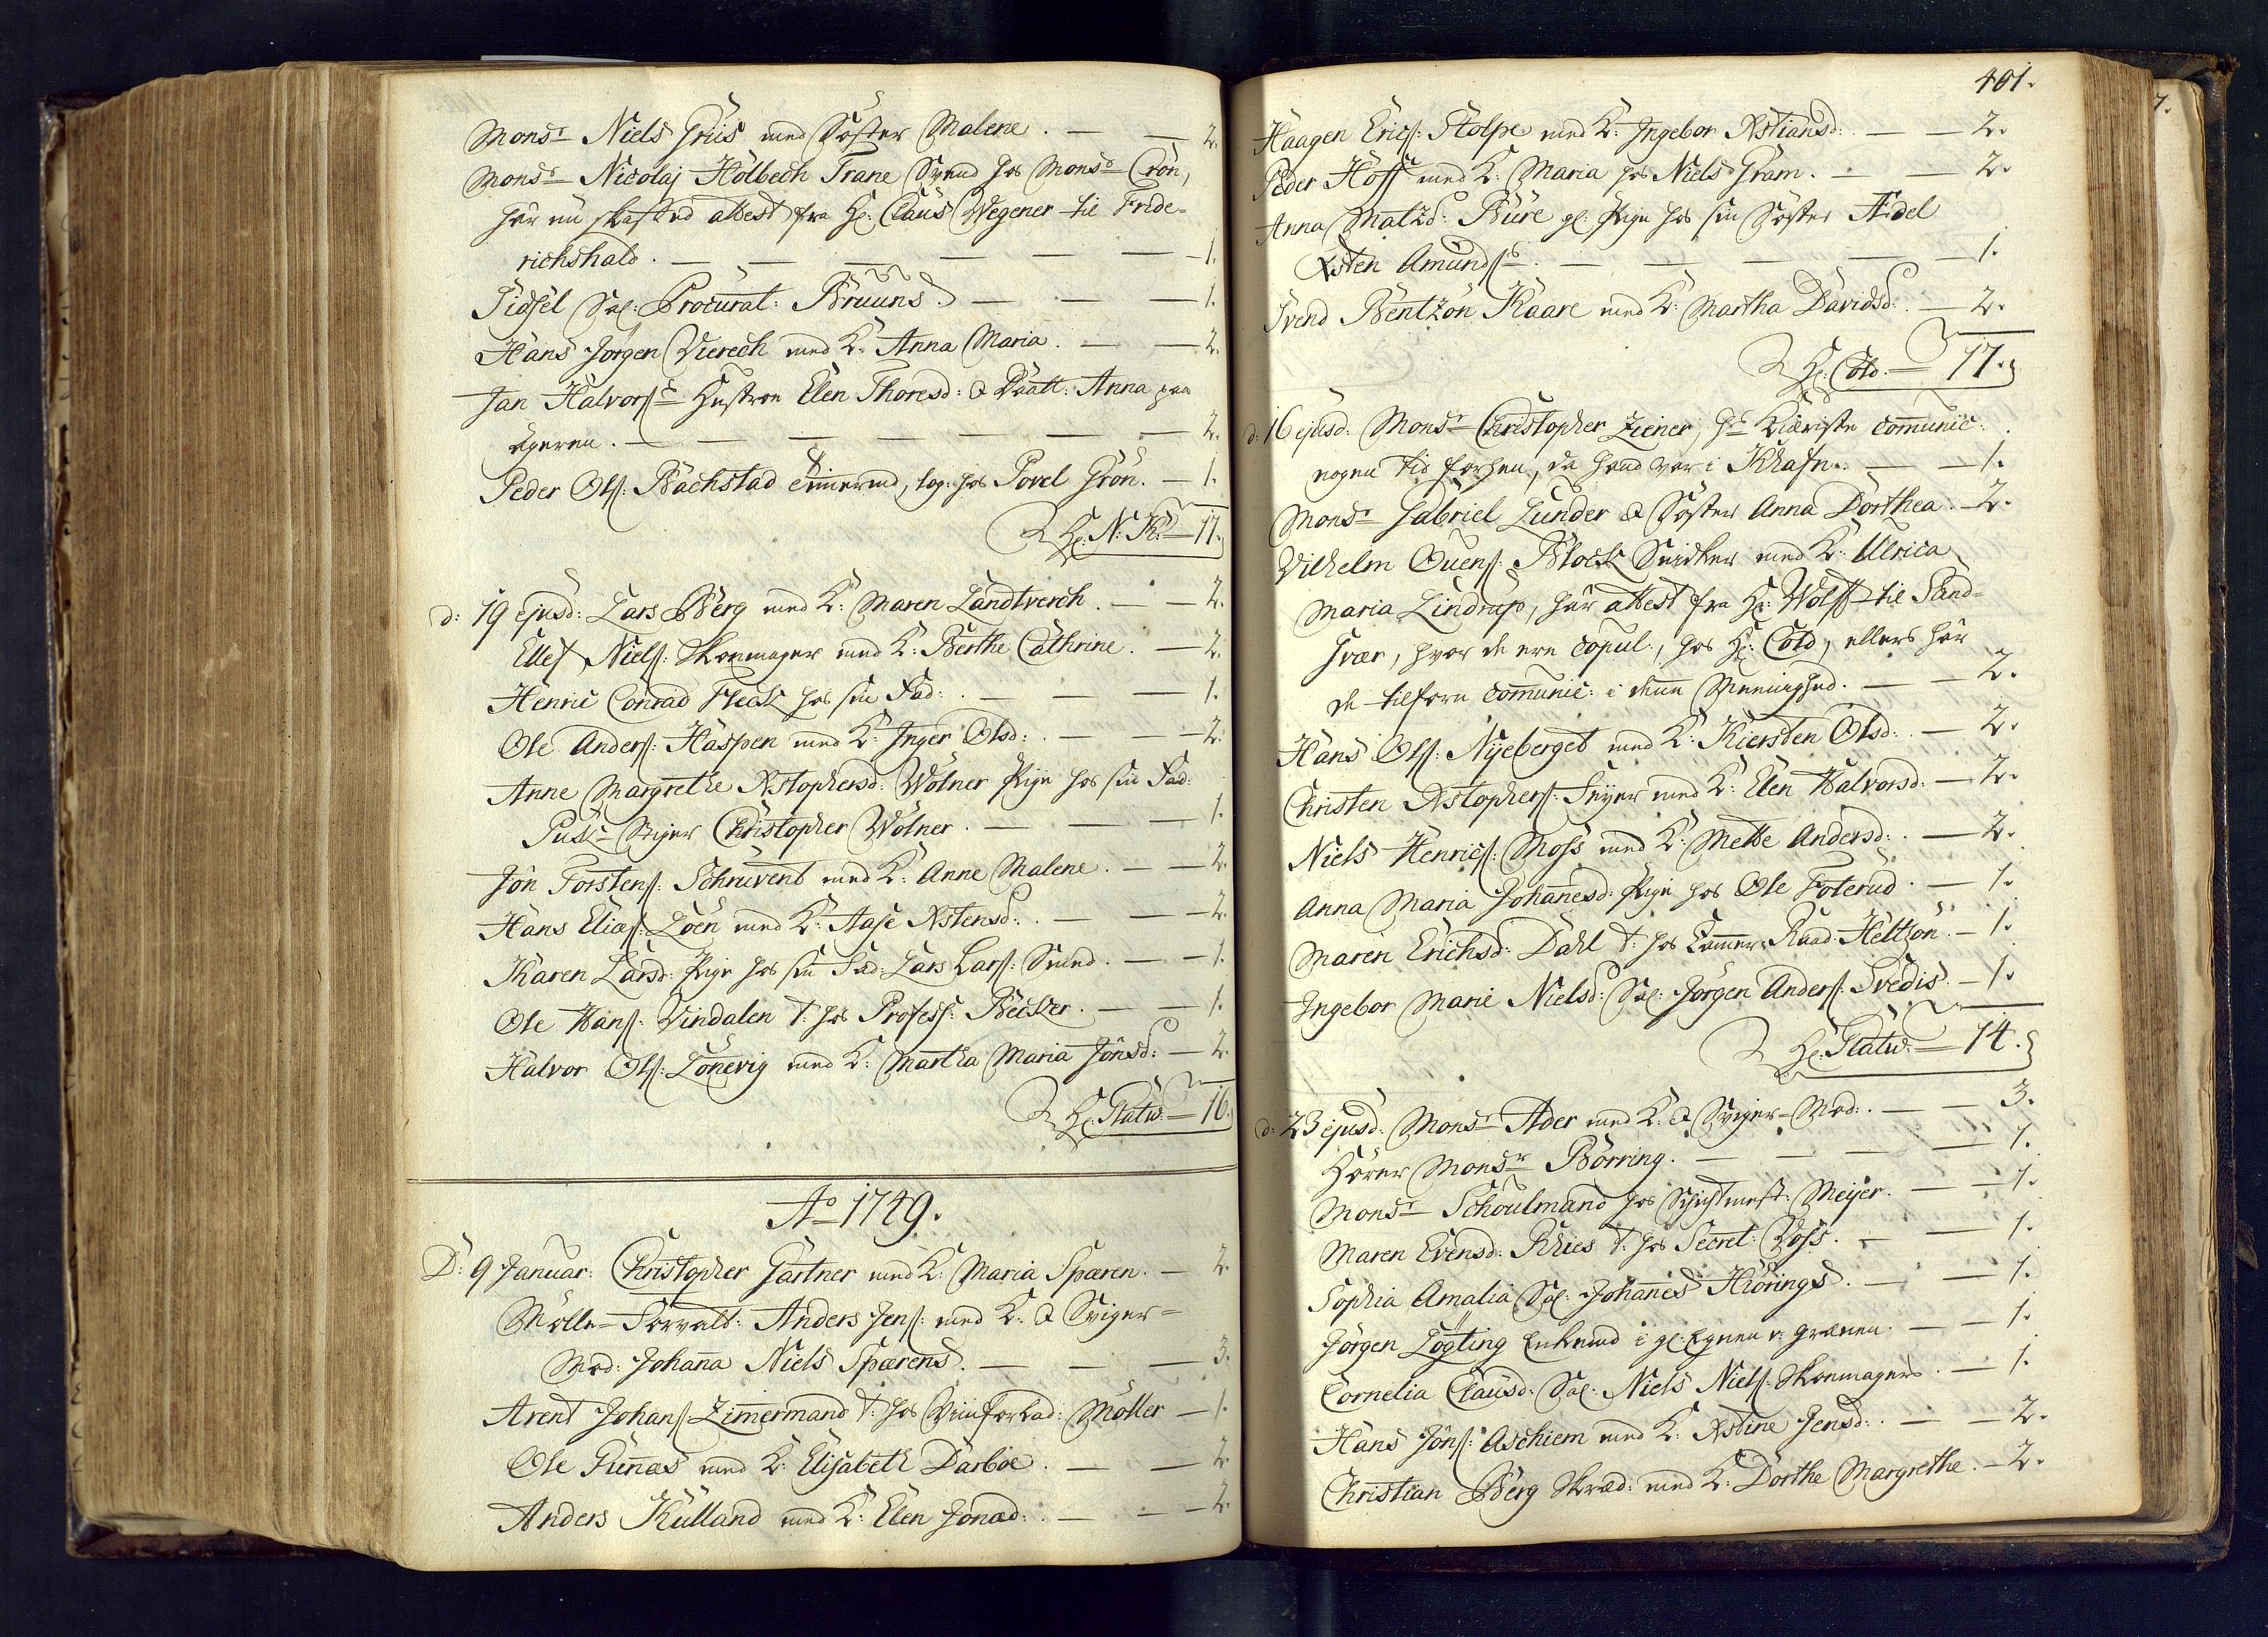 Monsr Niels Friis med Søster Malene. — — 2.
Monsr Nicolaj Holbech Trane Svend hos Monsr Crøn,
har nu skaffed attest fra Hr: Claus Wegener til Fride-
richshald. — — — — — — 1.
Sidsel Sal: Procurat: Bruuns. — — — 1.
Hans Jørgen Vierech med K: Anna Maria. — — 2.
Jan Halvors: Hustroe Elen Thoresd: & Daatt: Anna paa
Ageren. — — — — — — 2.
Peder Ols: Bachstad Timmermd, log: hos Povel Grøn. — 1.
Hr: N: K: — 17.
d: 19 ejusd: Lars Berg med K: Maren Landtverch. — — 2.
Ellef Niels: Skoemager med K: Berthe Cathrine. — 2.
Henric Conrad Fleck hos sin Fad: . — — — 1.
Ole Anders: Haspen med K: Inger Olsd: . — — 2.
Anne Margrethe Xstophersd: Wølner Pige hos sin Fad:
Puk- Stiger Christopher Wølner. — — — 1.
Jon Torstens: Schruvent med K: Anne Malene. — — 2.
Hans Elias: Loen med K: Aase Xstensd: . — — 2.
Karen Larsd: Pige hos sin Fad: Lars Lars: Smed. — — 1.
Ole Hans: Vindalen T: hos Profess: Becker. — — 1.
Halvor Ols: Lønevig med K: Martha Maria Jonsd: — 2.
Hr: Platw: — 16.
Ao 1749.
D: 9 Januar: Christopher Gartner med K: Maria Sparen. — 2.
Mølle-Forvalt: Anders Jens: med K: & Sviger-
Mod: Johanna Niels Sparens. — — — 3.
Arent Johans: Zimmermand T: hos Viinforlad: Møller — 1.
Ole Runnas med K: Elisabeth Darboe. — — 2.
Anders Kulland med K: Elen Jonæd: . — — 2.
401.
Haagen Erics: Stolpe med K: Ingebor Xstiansd: . — — 2.
Peder Hoff med K: Maria hos Niels Gram. — — 2.
Anna Matzd: Bure gl: Pige hos sin Søster Aidel
Xsten Amunds: . — — — — — 1.
Svend Bentzøn Kaare med K: Martha Davidsd: . — 2.
Hr: Cold. — 17.
d: 16 ejusd: Monsr Christopher Ziener, hs Kiæriste communic:
nogen tid forhen, da hand var i Khafn. . — — 1.
Monsr Gabriel Lunder & Søster Anna Dorthea. — 2.
Vilhelm Ouens: Block Snidker med K: Ulrica
Maria Lindrup, har attest fra Hr: Wolff til Sand-
svær, hvor de ere copul:, hos Hr: Cold, ellers har
de tilforn communic: i denne Meenighed. — — 2.
Hans Ols: Nyeberget med K: Kiersten Olsd: . — 2.
Christen Xstophers: Feyer med K: Elen Halvorsd. — 2.
Niels Henrics: Moss med K: Mette Andersd: . — 2.
Anna Maria Johannesd: Pige hos Ole Foterud. — 1.
Maren Erichsd: Dahl T: hos Cammer-Raad: Heltzøn. — 1.
Ingebor Marie Nielsd: Sal: Jørgen Anders: Svedis. — 1.
Hr: Platw: — 14.
d: 23 ejusd: Monsr Ader med K: & Sviger-Mod: . — — 3.
Hører Monsr Børring. — — — — 1.
Monsr Schoulmand hos Schichtmest: Meyer. — — 1.
Maren Evensd: Khies T: hos Secret: Voss. — — 1.
Sophia Amalia Sal: Johannes Hiørings. — — 1.
Jørgen Løgting Enkemd i gl: Egnen v: Grænen. — — 1.
Cornelia Clausd: Sal: Niels Niels: Skoemagers. — 1.
Hans Jons: Aschiem med K: Xstine Jensd: . — — 2.
Christian Berg Skræd: med K: Dorthe Margrethe. — 2.